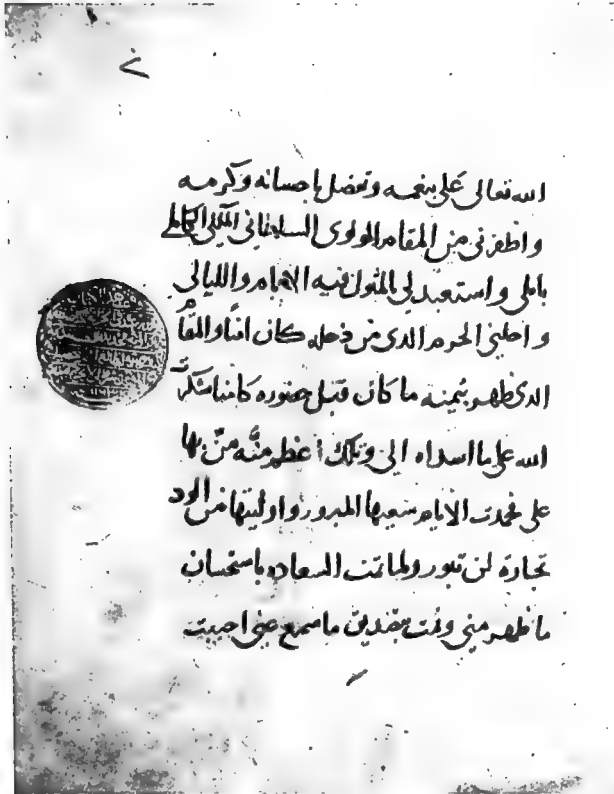 الله تعالى علي بنعمه وتفضل باحسانه وكرمه
واظفرني من المقام المولوي السلطاني الملكي الكاملي
باملي واستعبد لي المثول فيه الايام والليالي
واحلني الحرم الذي من دخله كان امنا والمقام
الذي ظهر بيمنه ما كان قبل حضوره كامنا شكرت
الله على ما اسداه الي وتلك اعظم منه من بها
علي فحمدت الايام سعيها المبرور واوليتها من الود
تجارة لن تبور ولما تمت السعاده باستحسان
ما ظهر مني وثنت بتصديق ما سمع عني احببت